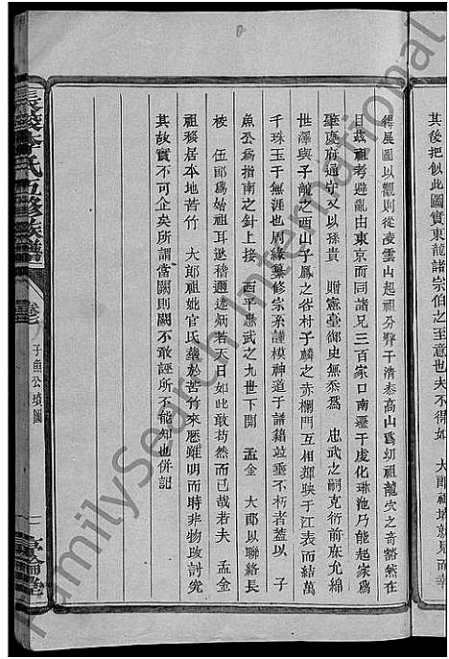 其後把似此圖實東龍諸宗伯之至意也夫不得如 大郎祖
得展圖以觀則從凌雲山起祖分脊于清泰高山爲幼祖龍穴之奇豁然在
目茲祖考避亂由東京而同諸兄三百家口南遷于虔化珠池乃能起家爲
肇慶府通守又以孫貴 贈憲臺御史無忝爲 忠武之嗣克衍前庥允綿
世澤與子龍之西山子鳳之谷村子麟之赤欄門互相輝映于江表而結萬
千珠玉于無涯也爰緣纂修宗系謹模神道于譜籍竝垂不朽者蓋以 子
魚公爲指南之針上接 西平忠武之九世下開 孟金 大郎以聯絡長
棱 伍郎爲始祖耳遂稽遷迹炳若天日如此敢苟然而已哉若夫 孟金
祖移居本地苦竹 大郎祖妣官氏葬於苦竹來歷雖明而時非物改討究
其故實不可企矣所謂當闕則闕不敢誣所不能知也併記
氏五修族譜
卷
子魚公墳圖
一
敦倫堂
FamilySearch International